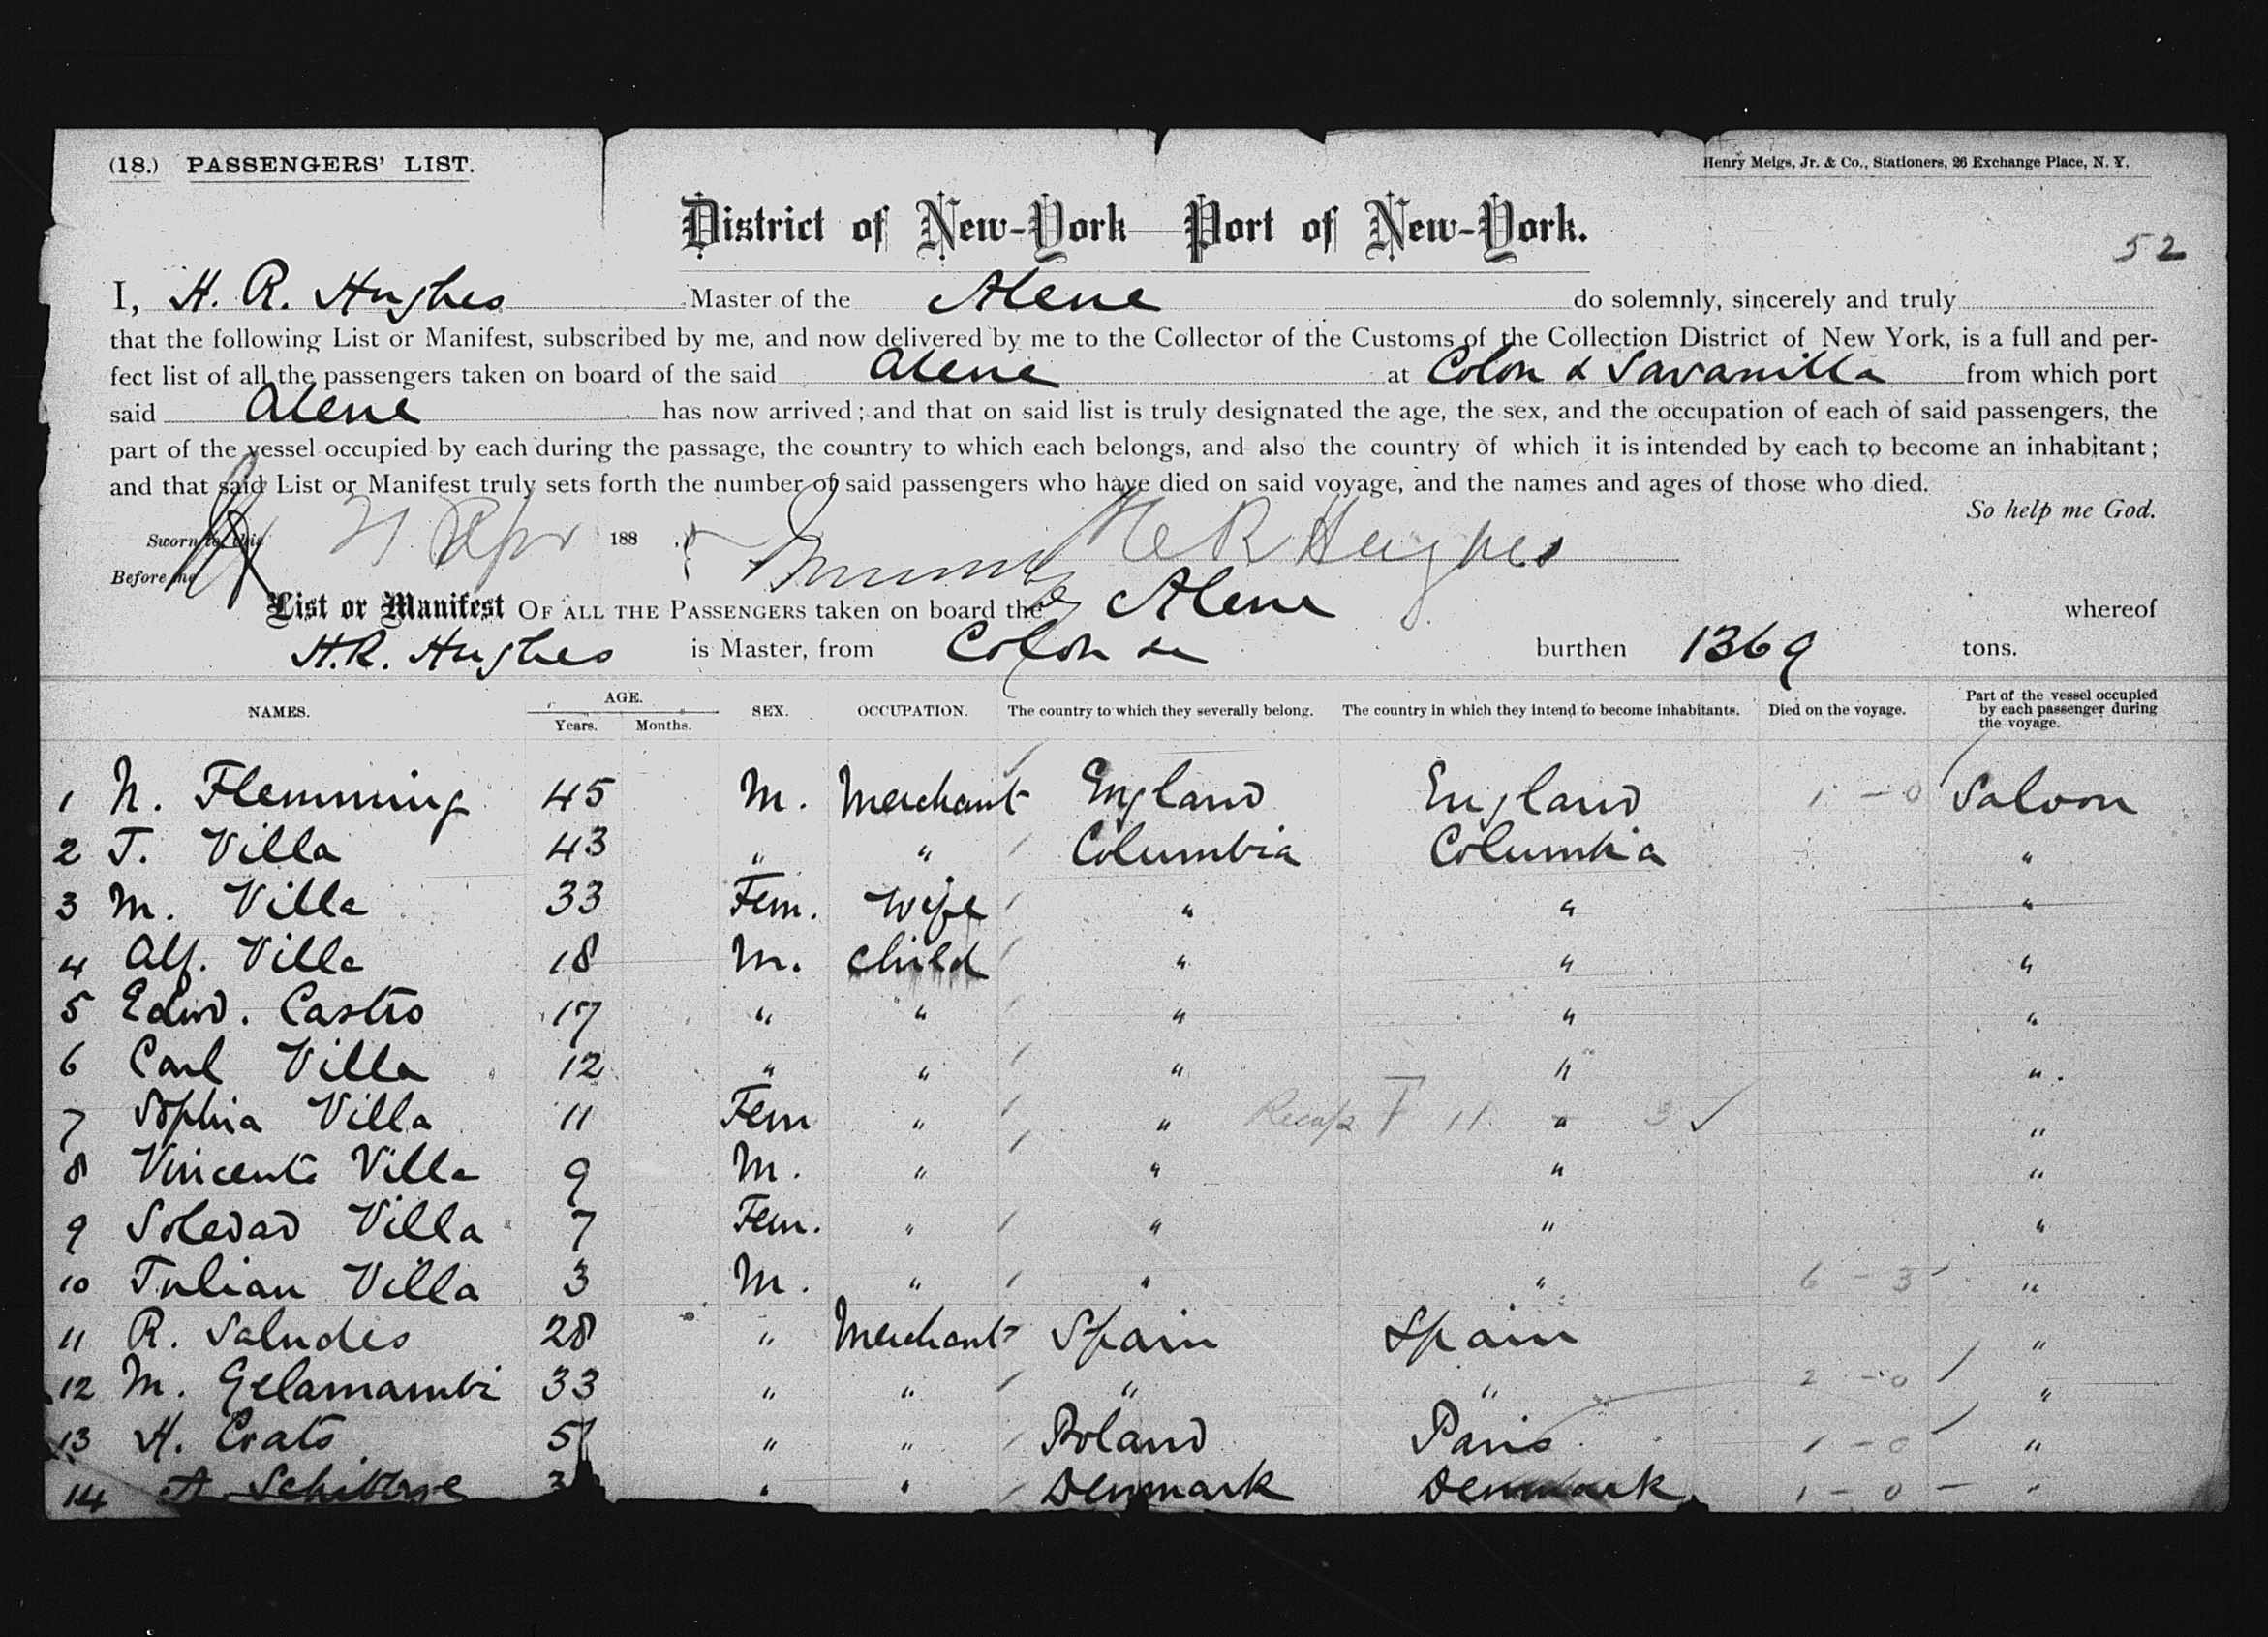 (18.) PASSENGERS' LIST.
Henry Meigs, Jr. & Co., Stationers, 26 Exchange Place, N. Y.
District of New-York—Port of New-York.
52
I, H. R. Hughes Master of the Alene do solemnly, sincerely and truly
that the following List or Manifest, subscribed by me, and now delivered by me to the Collector of the Customs of the Collection District of New York, is a full and per-
fect list of all the passengers taken on board of the said Alene at Colon & Savanilla from which port
said Alene has now arrived; and that on said list is truly designated the age, the sex, and the occupation of each of said passengers, the
part of the vessel occupied by each during the passage, the country to which each belongs, and also the country of which it is intended by each to become an inhabitant;
and that said List or Manifest truly sets forth the number of said passengers who have died on said voyage, and the names and ages of those who died.
So help me God.
Sworn to this 21 Apr 188 H R Hughes
Before me
List or Manifest OF ALL THE PASSENGERS taken on board the Alene whereof
H.R. Hughes is Master, from Colon &c burthen 1369 tons.
NAMES. AGE. Years. Months. SEX. OCCUPATION. The country to which they severally belong. The country in which they intend to become inhabitants. Died on the voyage. Part of the vessel occupied by each passenger during the voyage.
1 N. Flemming 45 M. Merchant England England 1 - 0 Saloon
2 T. Villa 43 " " Columbia Columbia "
3 M. Villa 33 Fem. Wife " " "
4 Alf. Villa 18 M. child " " "
5 Edwd. Castro 17 " " " " "
6 Carl Villa 12 " " " " "
7 Sophia Villa 11 Fem " " Recap 11 " 3 ✓ "
8 Vincente Villa 9 M. " " " "
9 Soledad Villa 7 Fem. " " " "
10 Julian Villa 3 M. " " " 6 - 3 "
11 R. Saludes 28 " Merchant Spain Spain "
12 M. Gelamambi 33 " " " " 2 - 0 "
13 H. Coats " " Poland Paris 1 - 0 "
14 A " " Denmark Denmark 1 - 0 "